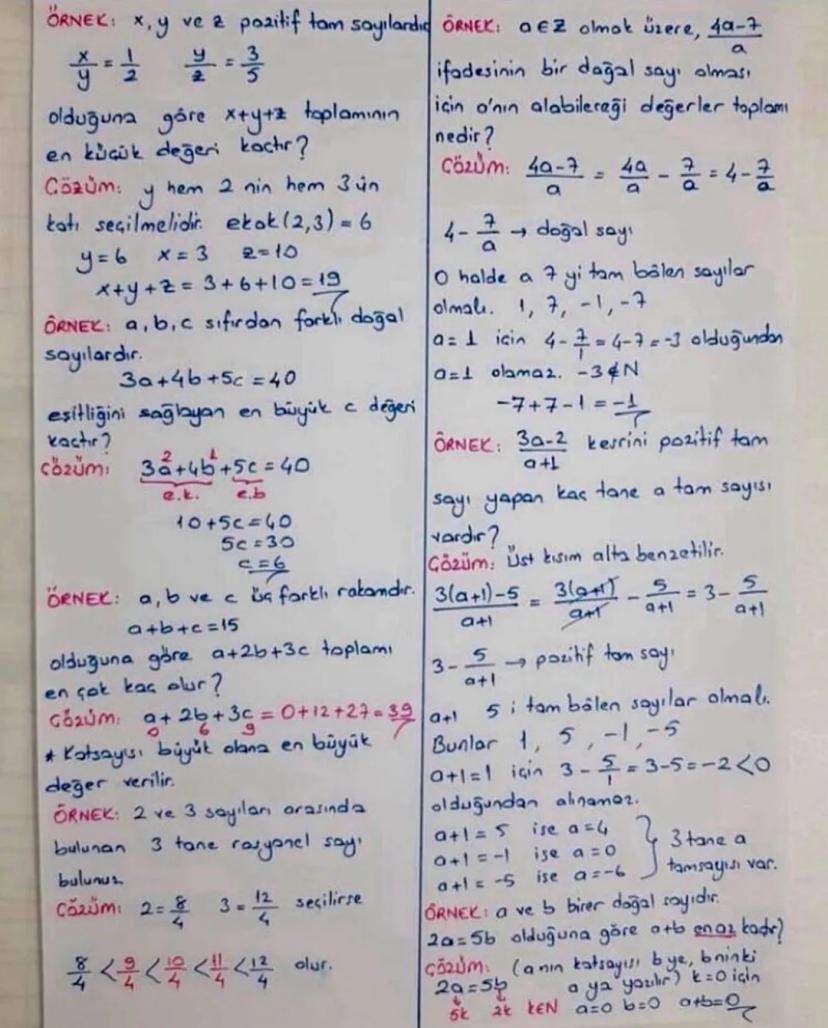 ÖRNEK: x, y ve z pozitif tam sayılardır
x/y = 1/2   y/z = 3/5
olduğuna göre x+y+z toplamının
en küçük değeri kaçtır?
Çözüm: y hem 2 nin hem 3 ün
katı seçilmelidir. ekok(2,3) = 6
y=6   x=3   z=10
x+y+z = 3+6+10=19
ÖRNEK: a,b,c sıfırdan farklı doğal
sayılardır.
3a+4b+5c=40
eşitliğini sağlayan en büyük c değeri
kaçtır?
Çözüm: 3a+4b+5c=40
2 1
e.k. e.b
10+5c=40
5c=30
c=6
ÖRNEK: a,b ve c üç farklı rakamdır.
a+b+c=15
olduğuna göre a+2b+3c toplamı
en çok kaç olur?
Çözüm: a+2b+3c=0+12+27=39
0 6 9
* Katsayısı büyük olana en büyük
değer verilir.
ÖRNEK: 2 ve 3 sayıları arasında
bulunan 3 tane rasyonel sayı
bulunuz
Çözüm: 2=8/4   3=12/4 seçilirse
8/4 < 9/4 < 10/4 < 11/4 < 12/4 olur.
ÖRNEK: a∈Z olmak üzere, 4a-7/a
ifadesinin bir doğal sayı olması
için a'nın alabileceği değerler toplamı
nedir?
Çözüm: 4a-7/a = 4a/a - 7/a = 4-7/a
4-7/a → doğal sayı
O halde a 7 yi tam bölen sayılar
olmalı. 1, 7, -1, -7
a=1 için 4-7/1=4-7=-3 olduğundan
a=1 olamaz. -3∉N
-7+7-1=-1
ÖRNEK: 3a-2/a+1 kesrini pozitif tam
sayı yapan kaç tane a tam sayısı
vardır?
Çözüm: Üst kısım alta benzetilir.
3(a+1)-5/a+1 = 3(a+1)/a+1 - 5/a+1 = 3-5/a+1
3-5/a+1 → pozitif tam sayı
a+1 5 i tam bölen sayılar olmalı.
Bunlar 1, 5, -1, -5
a+1=1 için 3-5/1=3-5=-2<0
olduğundan alınamaz.
a+1=5 ise a=4
a+1=-1 ise a=0
a+1=-5 ise a=-6
3 tane a
tamsayısı var.
ÖRNEK: a ve b birer doğal sayıdır.
2a=5b olduğuna göre a+b en az kaçtır?
Çözüm: (a nın katsayısı b ye, b ninki
2a=5b a ya yazılır) k=0 için
5k 2k KEN a=0 b=0 a+b=0